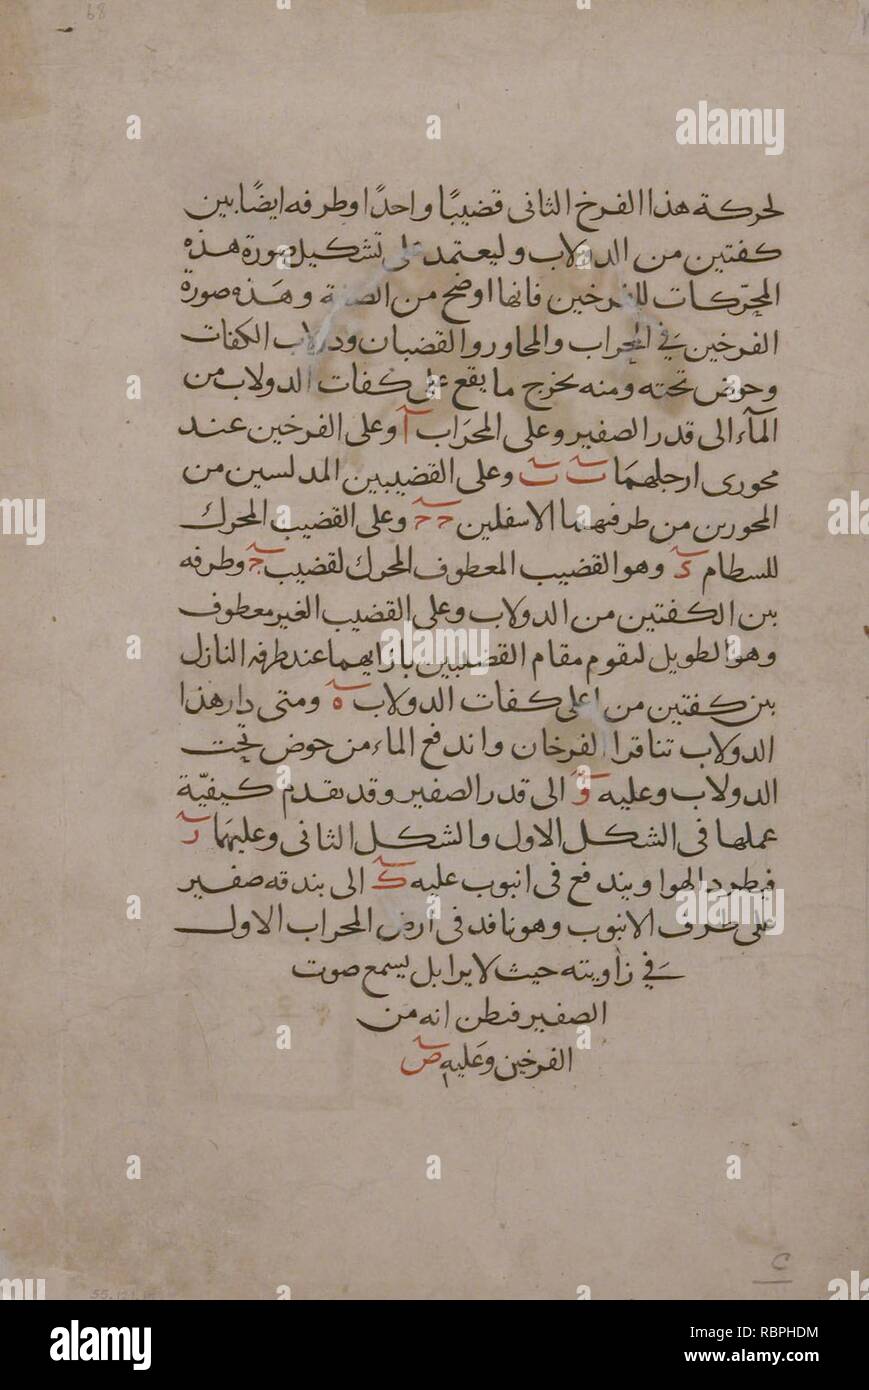 68
لحركة هذا الفرخ الثانى قضيبًا واحدًا وطرفه ايضًا بين
كفتين من الدولاب وليعتمد على تشكيل صورة هذه
المحرّكات للفرخين فانها اوضح من الصفة وهذه صورة
الفرخين فى المحراب والمحاور والقضبان ودولاب الكفات
وحوض تحته ومنه يخرج ما يقع على كفات الدولاب من
المآء الى قدر الصفير وعلى المحراب آ وعلى الفرخين عند
محورى ارجلهما ب ب وعلى القضيبين المدلسين من
المحورين من طرفيهما الاسفلين ح ح وعلى القضيب المحرك
للسطام د وهو القضيب المعطوف المحرك لقضيب ح وطرفه
بين الكفتين من الدولاب وعلى القضيب الغير معطوف
وهو الطويل ليقوم مقام القضيبين بازايهما عند طرفه النازل
بين كفتين من اعلى كفات الدولاب ه ومتى دار هذا
الدولاب تناقرا الفرخان واندفع الماء من حوض تحت
الدولاب وعليه و الى قدر الصفير وقد تقدم كيفيّة
عملها فى الشكل الاول والشكل الثانى وعليهما ر
فيطرد الهوا ويندفع فى انبوب عليه ك الى بندقه صفير
على طرف الانبوب وهو نافد فى ارض المحراب الاول
فى زاويته حيث لا يرا بل يسمع صوت
الصفير فيظن انه من
الفرخين وعليه ص
alamy
Image ID: RBPHDM
www.alamy.com